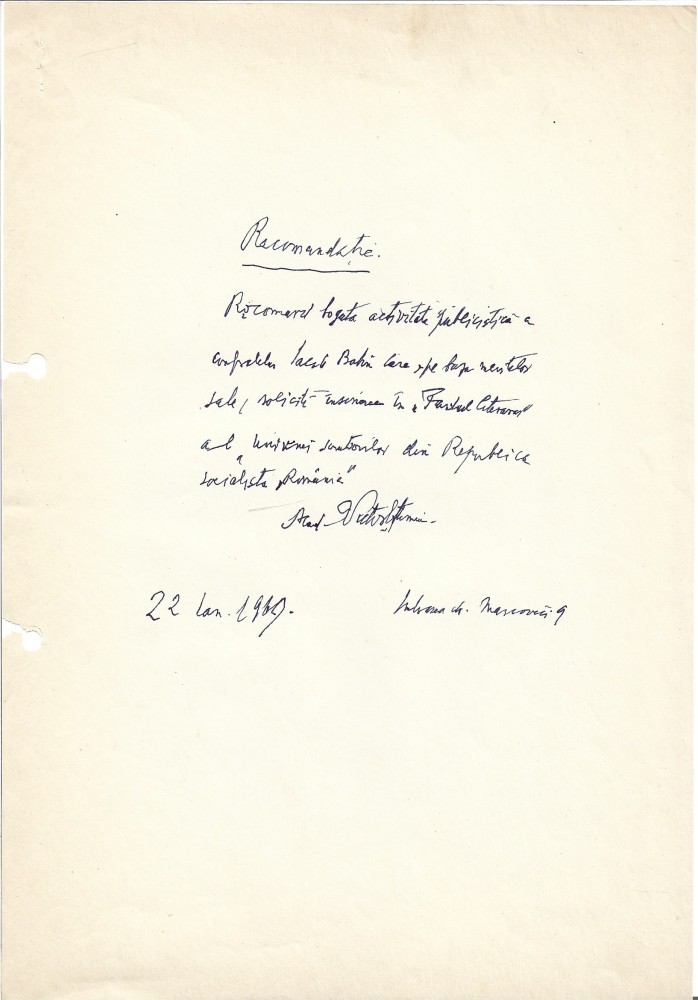 Recomandație.
Recomand bogata activitate publicistică a
confratelui Iacob Babin care, pe baza meritelor
sale, solicită înscrierea în „Fondul literar"
al „Uniunei scriitorilor din Republica
socialistă România"
Acad. Victor Eftimiu.
22 Ian. 1969.
Marcovici 9